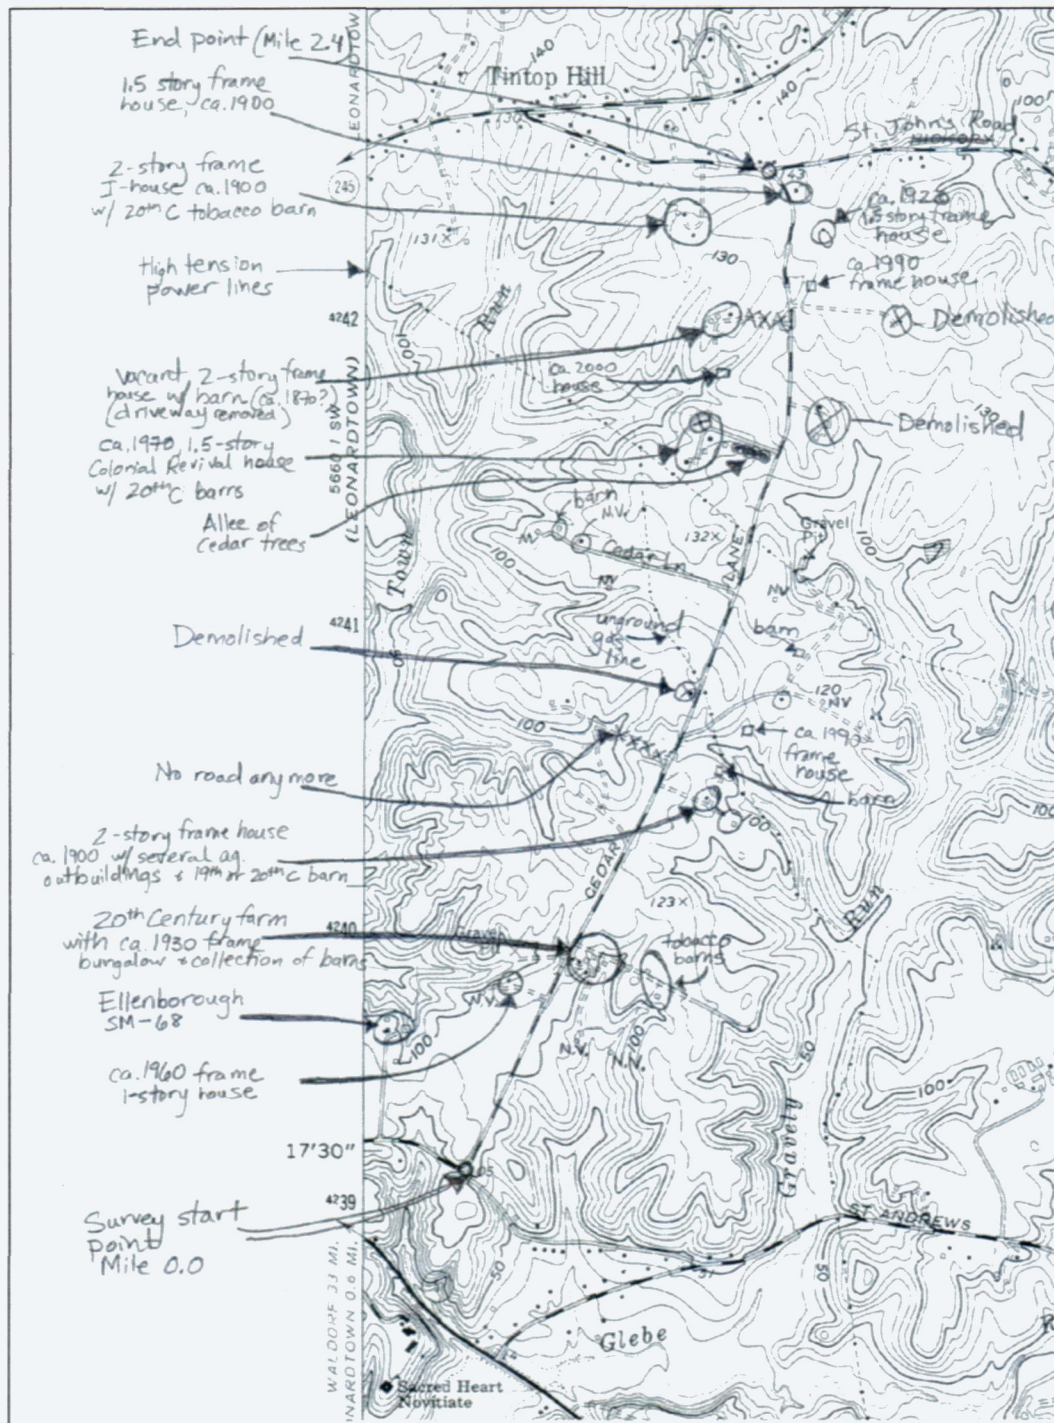 End point (Mile 2.4)
1.5 story frame
house, ca. 1900
2-story frame
I-house ca. 1900
w/ 20th C tobacco barn
High tension
power lines
Vacant 2-story frame
house w/ barn (ca. 1870?)
(driveway removed)
ca. 1970 1.5-story
Colonial Revival house
w/ 20th C barns
Allee of
cedar trees
Demolished
No road anymore
2-story frame house
ca. 1900 w/ several ag.
outbuildings & 19th or 20th C barn
20th Century farm
with ca. 1930 frame
bungalow & collection of barns
Ellenborough
SM-68
ca. 1960 frame
1-story house
17'30"
Survey start
point
Mile 0.0
LEONARDTOW
245
4242
5660 I SW
(LEONARDTOWN)
4241
4240
4239
WALDORF 33 MI.
NARDTOWN 0.6 MI.
Tintop Hill
140
140
130
100
St. John's Road
43
ca. 1920
1.5 story frame
house
131×
130
ca. 1990
frame house
Run
100
Demolished
ca. 2000
house
130
Demolished
barn
N.V.
Cedar Ln
NV
132×
Gravel
Pit
100
NV
100
Town
LANE
unground
gas
line
barn
90
120
NV
100
ca. 1990
frame
house
barn
100
100
CEDAR
123×
Run
Gravel
Pit
tobacco
barns
N.V.
100
100
N.V.
N.V.
50
100
Gravely
05
ST ANDREWS
50
37
50
Glebe
14
Sacred Heart
Novitiate